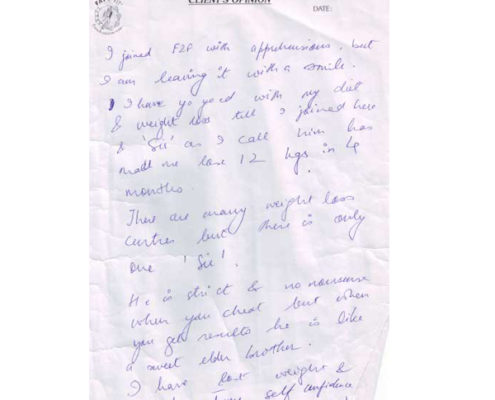 CLIENT'S OPINION
DATE:
I joined F2F with apprehensions, but
I am leaving it with a smile.
I have yo yo'd with my diet
& weight loss till I joined here
& 'Sir' as I call him has
made me lose 12 kgs in 4
months.
There are many weight loss
centres but there is only
one 'Sir'.
He is strict & no nonsense
when you cheat but when
you get results he is like
a sweet elder brother.
I have lost weight &
self confidence